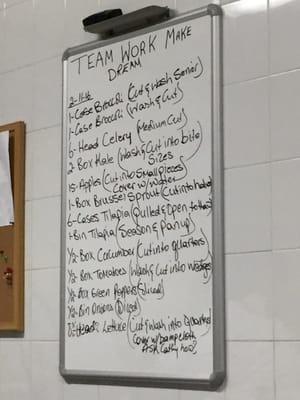 TEAM WORK MAKE
DREAM
2-11-16
1-Case Broccoli (Cut & Wash Senior)
1-Case Broccoli (Wash & Cut)
6-Head Celery (Medium Cut)
2-Box Kale (Wash & Cut into bite
Sizes)
15-Apples (Cut into Small pieces
Cover w/ water)
1-Box Brussel Sprout (Cut into
6-Cases Tilapia (Pulled & Open
1-Bin Tilapia (Season & Pan up)
1/2-Box Cucumber (Cut into quarters)
1/2-Box-Tomatoes (Wash & Cut into wedges)
1/2-Box Green Peppers (Sliced)
1/2-Bin Onions (Diced)
Head Lettuce (Cut & Wash into Quarters
Cover w/ Damp cloth
Ask Cathy